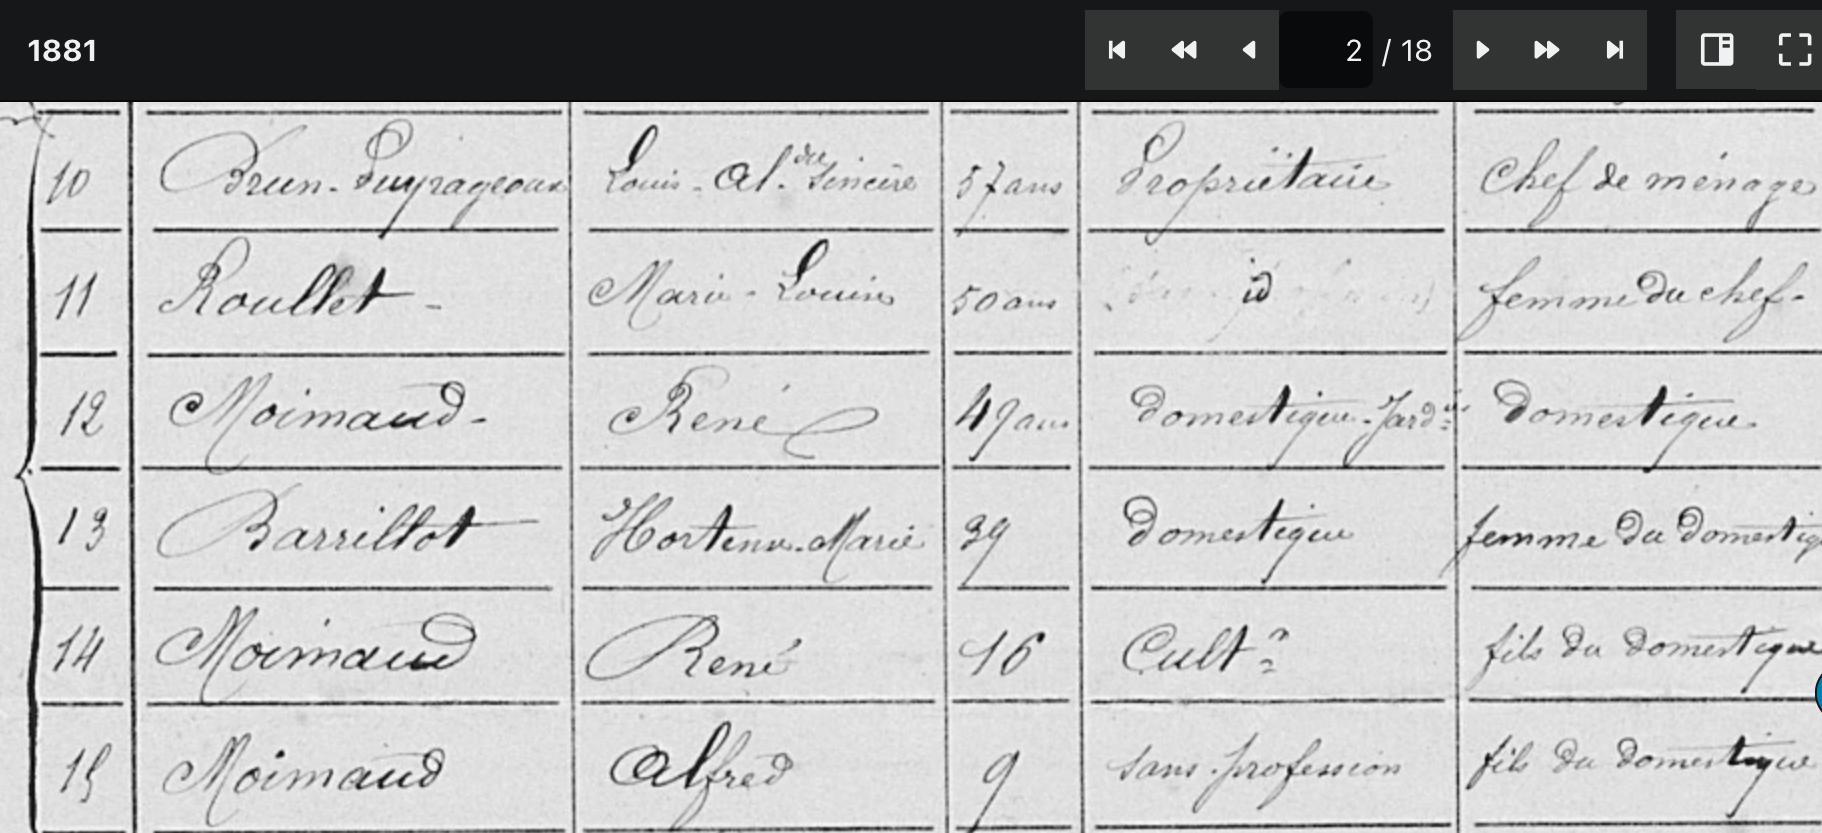 1881 2 / 18
10 Brun-Puyrageoux Louis-Al.dre Sincère 57 ans Propriétaire Chef de ménage
11 Roullet - Marie-Louise 50 ans id femme du chef-
12 Moimaud- René 49 ans domestique-Jard.er domestique
13 Barrillot Hortense-Marie 39 domestique femme du domestiq
14 Moimaud René 16 Cult.r fils du domestique
15 Moimaud Alfred 9 sans profession fils du domestique